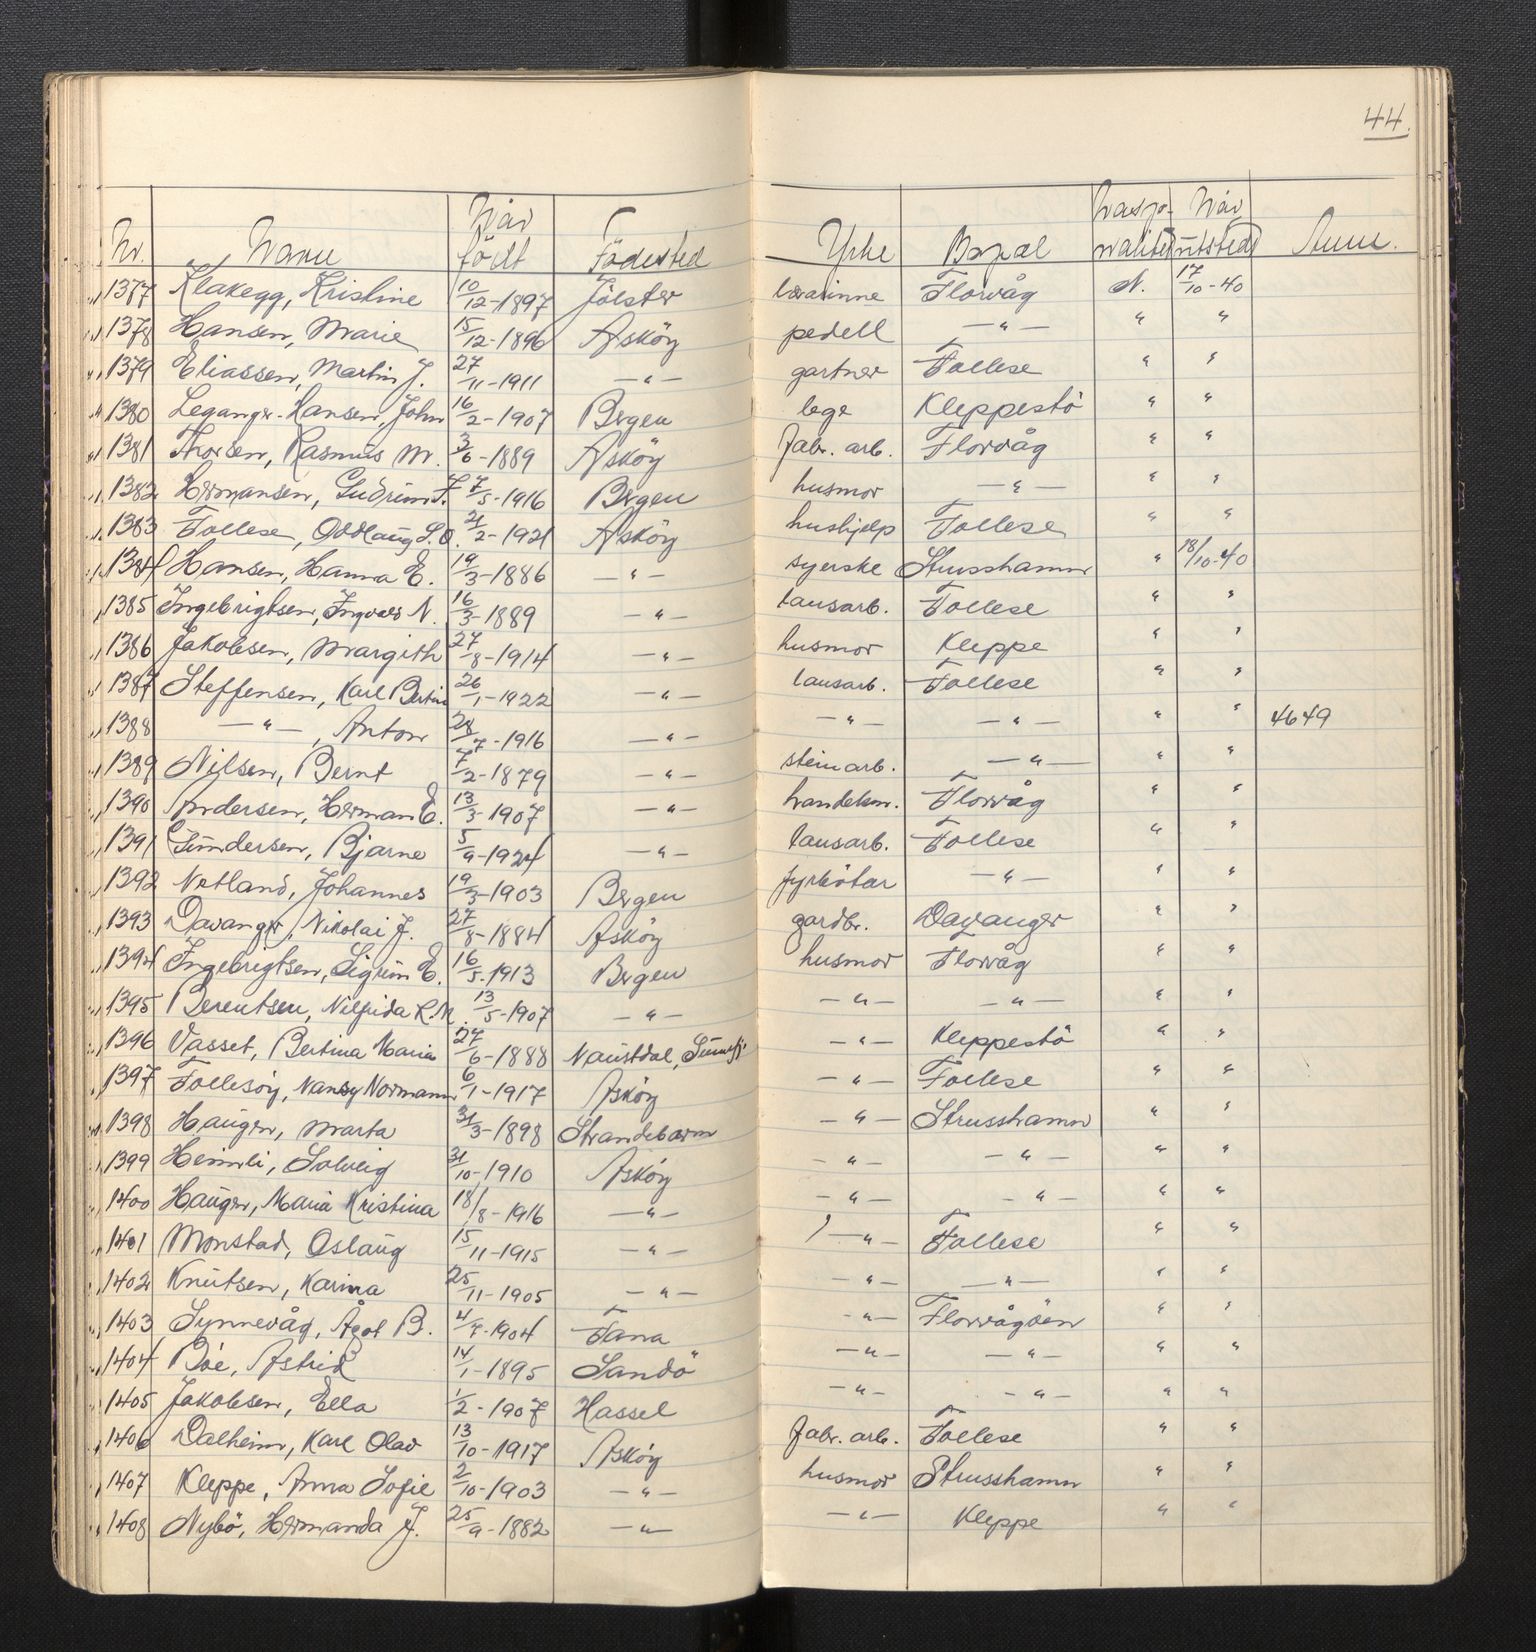 44.
Nr. Navn Når født Födested Yrke Bopæl Nasjo- nalitet Når utstedt Anm.
1377 Klakegg, Kristine 10/12-1897 Jölster lærarinne Florvåg N. 17/10-40
1378 Hansen, Marie 15/12-1896 Asköy pedell —"— " "
1379 Eliassen, Martin J. 27/11-1911 —"— gartner Follese " "
1380 Leganger-Hansen, John 16/2-1907 Bergen lege Kleppestö " "
1381 Thorsen, Rasmus M. 3/6-1889 Asköy fabr. arb. Florvåg " "
1382 Hermansen, Gudrun J. 7/5-1916 Bergen husmor —"— " "
1383 Follese, Oddlaug S.O. 21/2-1921 Asköy hushjelp Follese " "
1384 Hansen, Hanna E. 19/3-1886 —"— syerske Strusshamn " 18/10-40
1385 Ingebrigtsen, Ingvald N. 16/3-1889 —"— lausarb. Follese " "
1386 Jakobsen, Margith 27/8-1914 —"— husmor Kleppe " "
1387 Steffensen, Karl Bertin 26/1-1922 —"— lausarb. Follese " "
1388 —"—, Anton 28/7-1916 —"— —"— —"— " " 4649
1389 Nilsen, Bernt 7/2-1879 —"— steinarb. —"— " "
1390 Andersen, Herman E. 13/3-1907 —"— handelsm. Florvåg " "
1391 Gundersen, Bjarne 5/9-1924 —"— lausarb. Follese " "
1392 Netland, Johannes 19/3-1903 Bergen fyrbötar —"— " "
1393 Davanger, Nikolai J. 27/8-1884 Asköy gardbr. Davanger " "
1394 Ingebrigtsen, Sigrun E. 16/5-1913 Bergen husmor Florvåg " "
1395 Berentsen, Nilfrida R.M. 13/5-1907 —"— —"— —"— " "
1396 Vasset, Bertina Maria 27/6-1888 Naustdal, Sunnfj. —"— Kleppestö " "
1397 Follesöy, Nancy Normann 6/1-1917 Asköy —"— Follese " "
1398 Haugen, Marta 31/3-1898 Strandebarm —"— Strusshamn " "
1399 Heimli, Solveig 31/10-1910 Asköy —"— —"— " "
1400 Hauger, Maria Kristina 18/8-1916 —"— —"— —"— " "
1401 Monstad, Oslaug 15/11-1915 —"— —"— Follese " "
1402 Knutsen, Karina 25/11-1905 —"— —"— —"— " "
1403 Synnevåg, Ågot B. 4/9-1904 Fana —"— Florvågöen " "
1404 Böe, Astrid 14/1-1895 Sandö —"— —"— " "
1405 Jakobsen, Ella 1/2-1907 Hassel —"— —"— " "
1406 Dalheim, Karl Olav 13/10-1917 Asköy fabr. arb. Follese " "
1407 Kleppe, Anna Sofie 2/10-1903 —"— husmor Strusshamn " "
1408 Nybö, Hermanda J. 25/9-1882 —"— —"— Kleppe " "